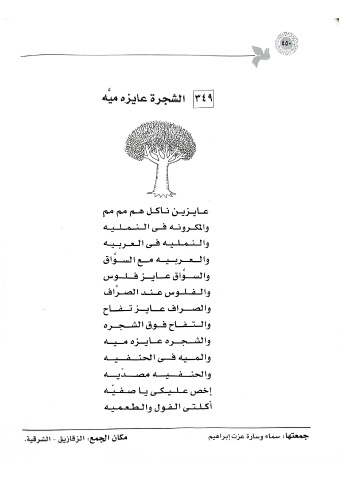 ٤٥٠
٣٤٩ الشجرة عايزه ميَّه
عايزين ناكل هم مم مم
والمكرونه فى النمليه
والنمليه فى العربيه
والعربيه مع السوَّاق
والسوَّاق عايز فلوس
والفلوس عند الصرَّاف
والصراف عايز تفاح
والتفاح فوق الشجره
والشجره عايزه ميه
والميه فى الحنفيه
والحنفيه مصدّيه
إخص عليكى يا صفيّه
أكلتى الفول والطعميه
جمعتها: سماء وسارة عزت إبراهيم مكان الجمع: الزقازيق - الشرقية.